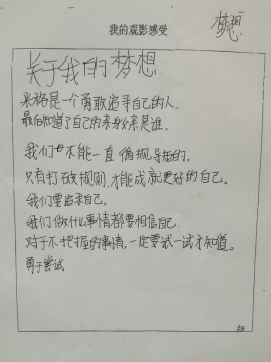 梦想
我的观影感受
关于我的梦想
米格是一个勇敢追寻自己的人,
最后知道了自己的亲身父亲是谁.
我们也不能一直循规导矩的.
只有打破规则,才能成就更好的自己。
我们要追求自己。
我们做什么事情都要相信自己.
对于不把握的事情,一定要试一试才知道。
勇于尝试